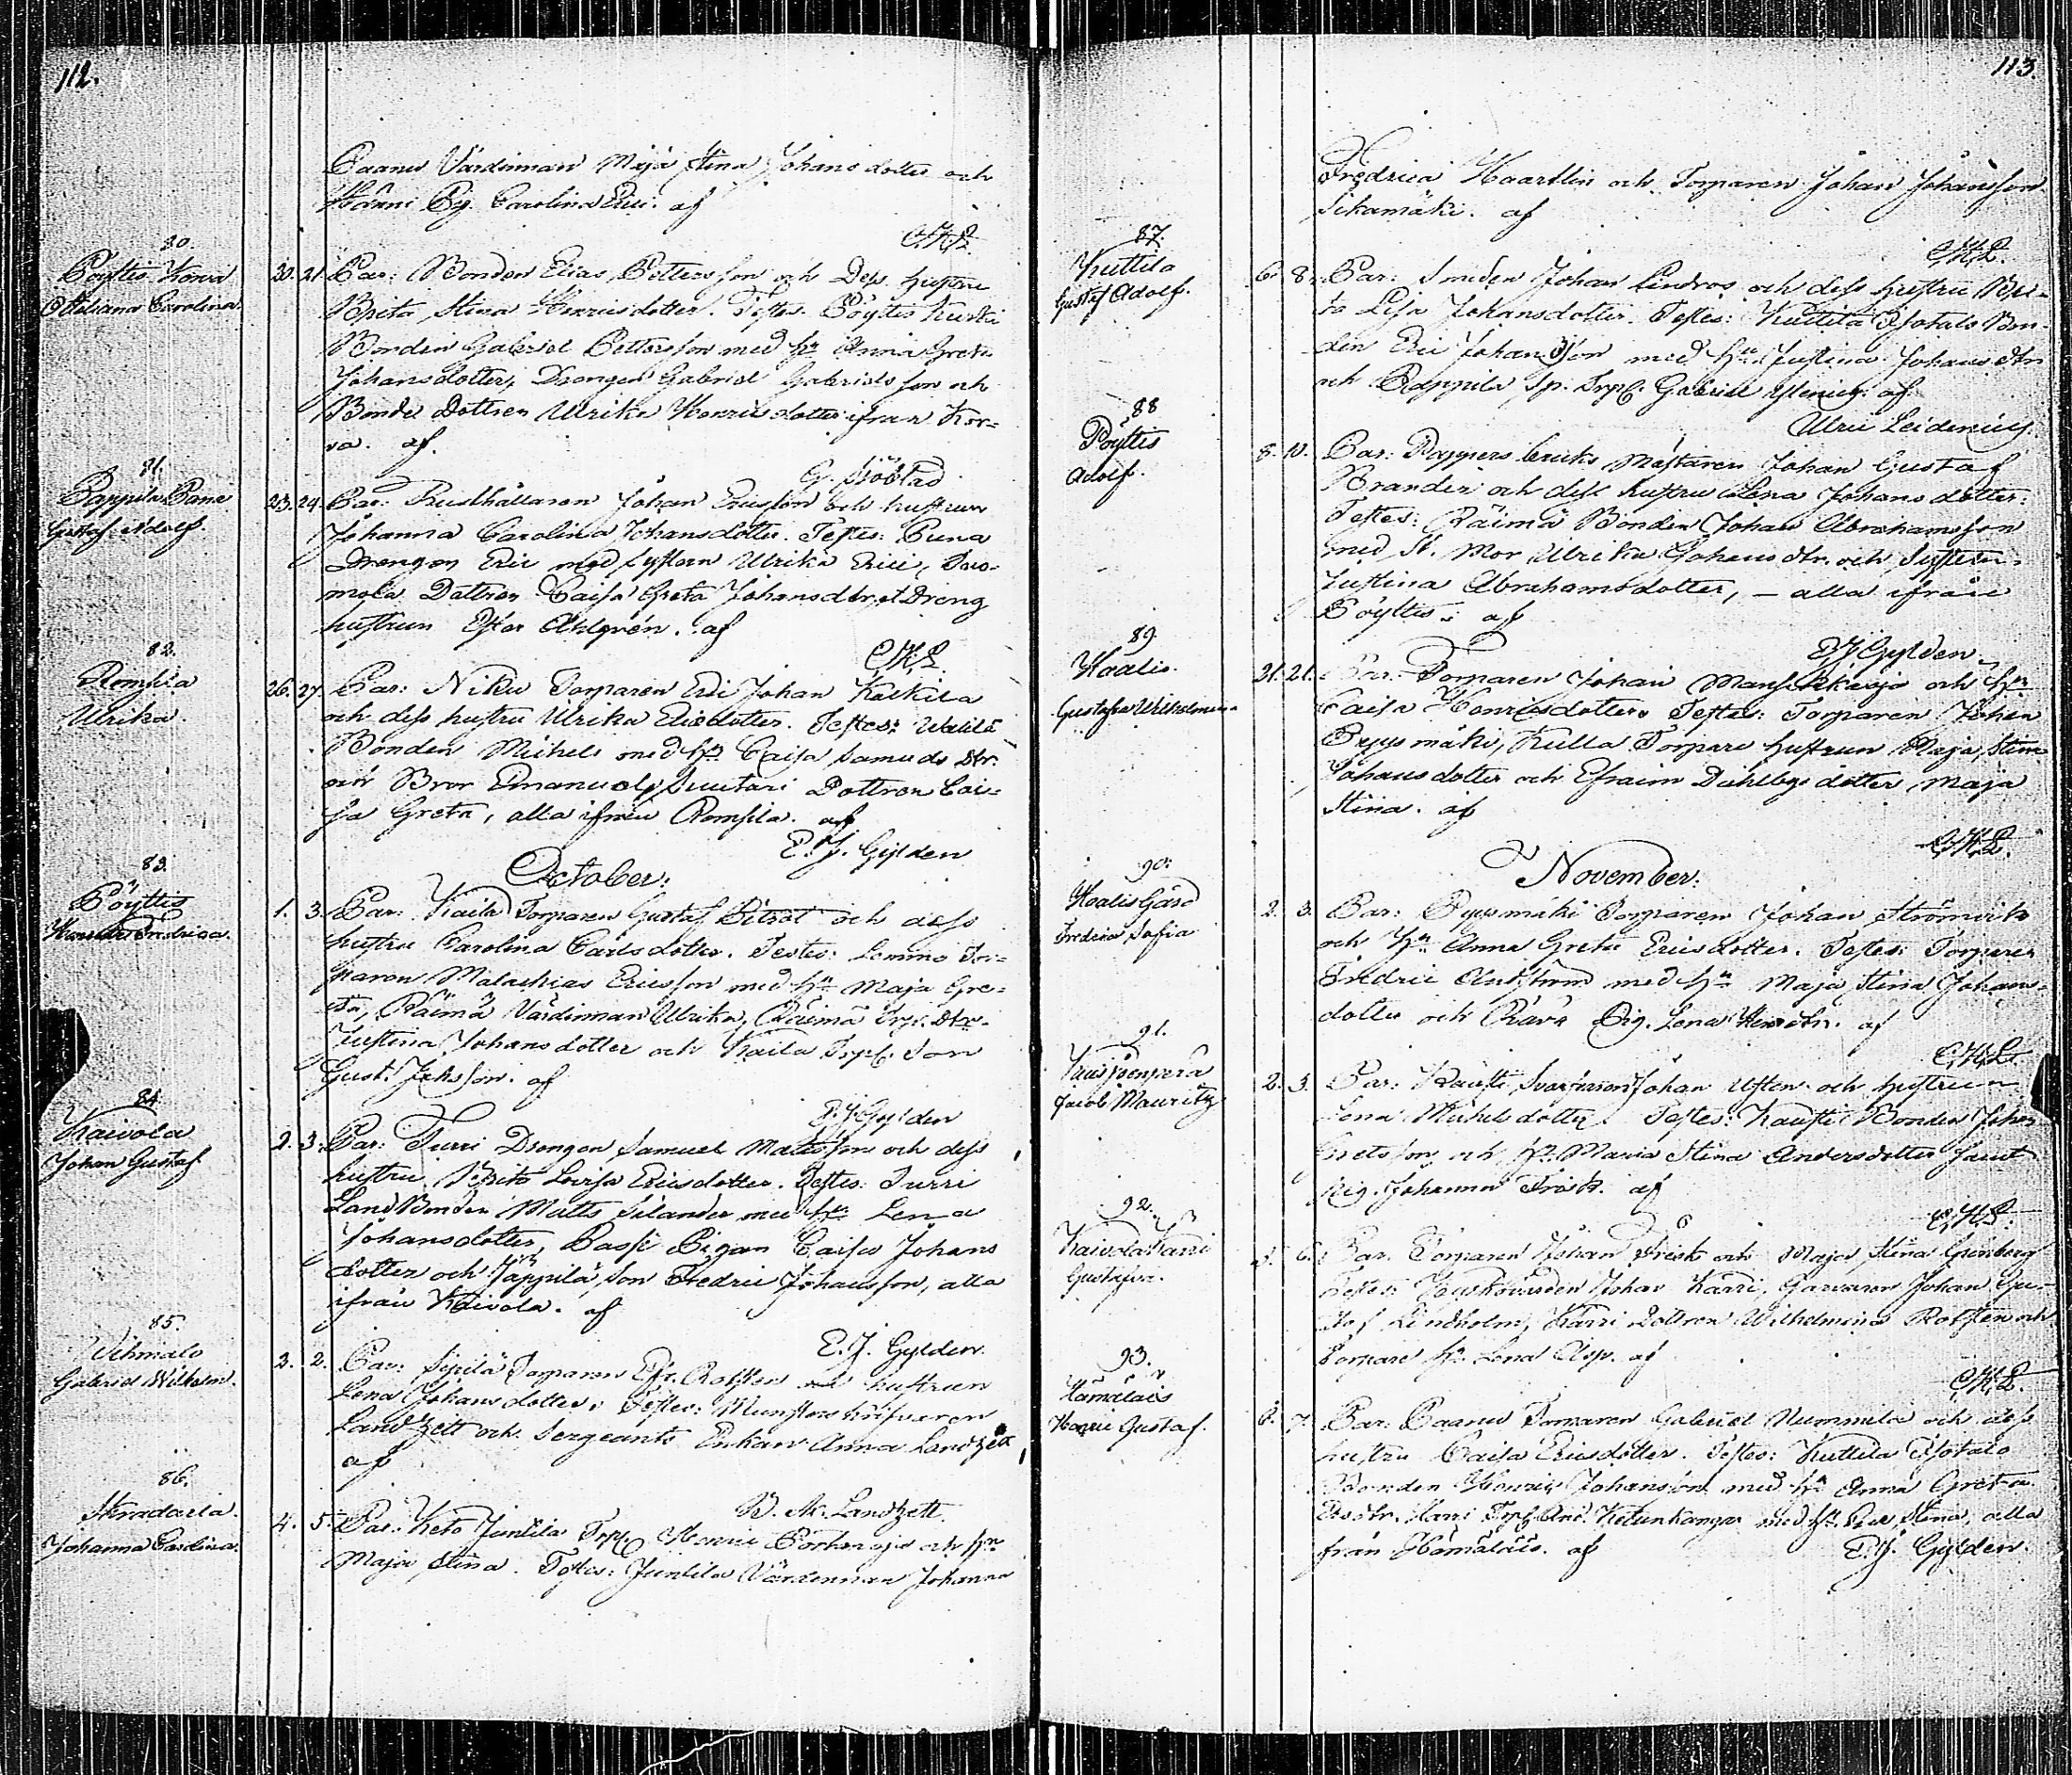 112.
Paanu Värdinnan Maja Stina Johansdotter och
Hänni Pig. Carolina Eric: af
C.H.L.
80.
Pöyttis Korva
Adriana Carolina.
20. 21. Par: Bonden Elias Pettersson och Dess hustru
Brita Stina Henricsdotter. Testes: Pöytis Kurki
Bonden Gabriel Pettersson med hr Anna Greta
Johansdotter, Drengen Gabriel Gabrielsson och
Bonde Dottren Ulrika Henricsdotter ifrån Kor-
va. af.
G. Sjöblad
81.
Pappila Pana
Gustaf Adolf.
23. 24. Par: Rusthållaren Johan Ericsson och hustrun
Johanna Carolina Johansdotter. Testes: Puna
Drengen Eric med Systern Ulrika Erici,
mola Dottren Caisa Greta Johansdtr, et Dreng
hustrun Ester Ahlgrén. af
C.H.L.
82.
Romsila
Ulrika.
26. 27. Par: Niku Torparen Eric Johan Kalkila
och dess hustru Ulrika Ericsdotter. Testes: Uotila
Bonden Mikels med hr Caisa Samuels Dtr.
och Bror Emanuel, Suutari Dottren Cai-
sa Greta, alla ifrån Romsila. af
E. J. Gylden
October:
83.
Pöyttis
Wendla Fredrica.
1. 3. Par: Kaila Torparen Gustaf och dess
hustru Carolina Carlsdotter. Testes: Lemmi Tor-
paren Malachias Ericsson med hr Maja Gre-
ta, Räimä Värdinnan Ulrika, Räimä Trp. Dtr.
Justina Johansdotter och Kaila Trps. Son
Gust. Johsson. af
E. J. Gylden
84.
Kaivola
Johan Gustaf
2. 3. Par: Turri Drengen Samuel Matsson och dess
hustru Brita Lovisa Ericsdotter. Testes: Turri
Landbonden Matts Silander med hr Lena
Johansdotter, Bassi Pigan Caisa Johans
dotter och Jäppilä, Son Fredric Johansson, alla
ifrån Kaivola. af
E. J. Gylden.
85.
Vihmalo
Gabriel Wilhelm.
2. 2. Par: Sipilä Torparen Efr. Rotsten och hustrun
Lena Johansdotter. Testes: Munsterskrifvaren
Landzett och Sergeants Enkan Anna Landzett
af
B. A. Landzett.
86.
Skradarla.
Johanna Carolina.
4. 5. Par: Keto Juntila Trp. Henric Porkanoja och hr
Maja Stina. Testes: Juntila Värdinnan Johanna
113.
Fredrica Haartlin och Torparen Johan Johansson
Sikamäki. af
C.H.L.
87.
Kuttila
Gustaf Adolf.
6. 8. Par: Smeden Johan Lindros och dess hustru Bri-
ta Lisa Johansdotter. Testes: Kuttila Isotalo Bon-
den Eric Johansson med hr Justina Johans dtr
och Pappila Sp. Trps. Gabriel Henric. af
Ulric Leidenius.
88
Pöyttis
Adolf.
8. 10. Par: Pappersbruks Mästaren Johan Gustaf
Brander och dess hustru Lena Johansdotter.
Testes: Räimä Bonden Johan Abrahamsson
med St. Mor Ulrika Johans dtr. och Systern
Justina Abrahamsdotter, – alla ifrån
Pöyttis. af
E J Gylden.
89.
Haalis.
Gustafva Wilhelmina
21. 21. Par: Torparen Johan Mans och hr
Caisa Henricsdotter. Testes: Torparen Johan
Pyysmäki, Kulla Torpare hustrun Maja Stina
Johansdotter och Efraim Dahlbgs dotter Maja
Stina. af
C.H.L.
November:
90.
Haalis Gård
Fredrica Sofia
2. 3. Par: Pyysmäki Torparen Johan Strömvik
och hr Anna Greta Ericsdotter. Testes: Torparen
Fredric med hr Maja Stina Johans-
dotter och Rävä Pig. Lena Henr. dtr. af
C.H.L.
91.
Kuusjoenperä
Jacob Mauritz
2. 3. Par: Kaufti Svarfvaren Johan och hustrun
Lena Mickelsdotter. Testes: Kaufti Bonden Johan
och hr Maria Stina Andersdotter samt
Pig. Johanna Frisk. af
C.H.L.
92.
Kaivola Karri
Gustafva.
5. 6. Par: Torparen Johan Frisk och Maja Stina Grönberg
Testes: Johan Kärri, Garvaren Johan Gu-
staf Lindholm, Kärri Dottren Wilhelmina Rotsten och
Torpare hr Lena Asp. af
C.H.L.
93.
Hämäläis
Henric Gustaf.
6. 7. Par: Paanu Torparen Gabriel Nummila och dess
hustru Caisa Ericsdotter. Testes: Kuttila Isotalo
Bonden Henric Johansson med hr Anna Greta
Harri Trp. And. Ketunkangas med hr Eva Stina, alla
från Hämäläis. af
E. J. Gylden.